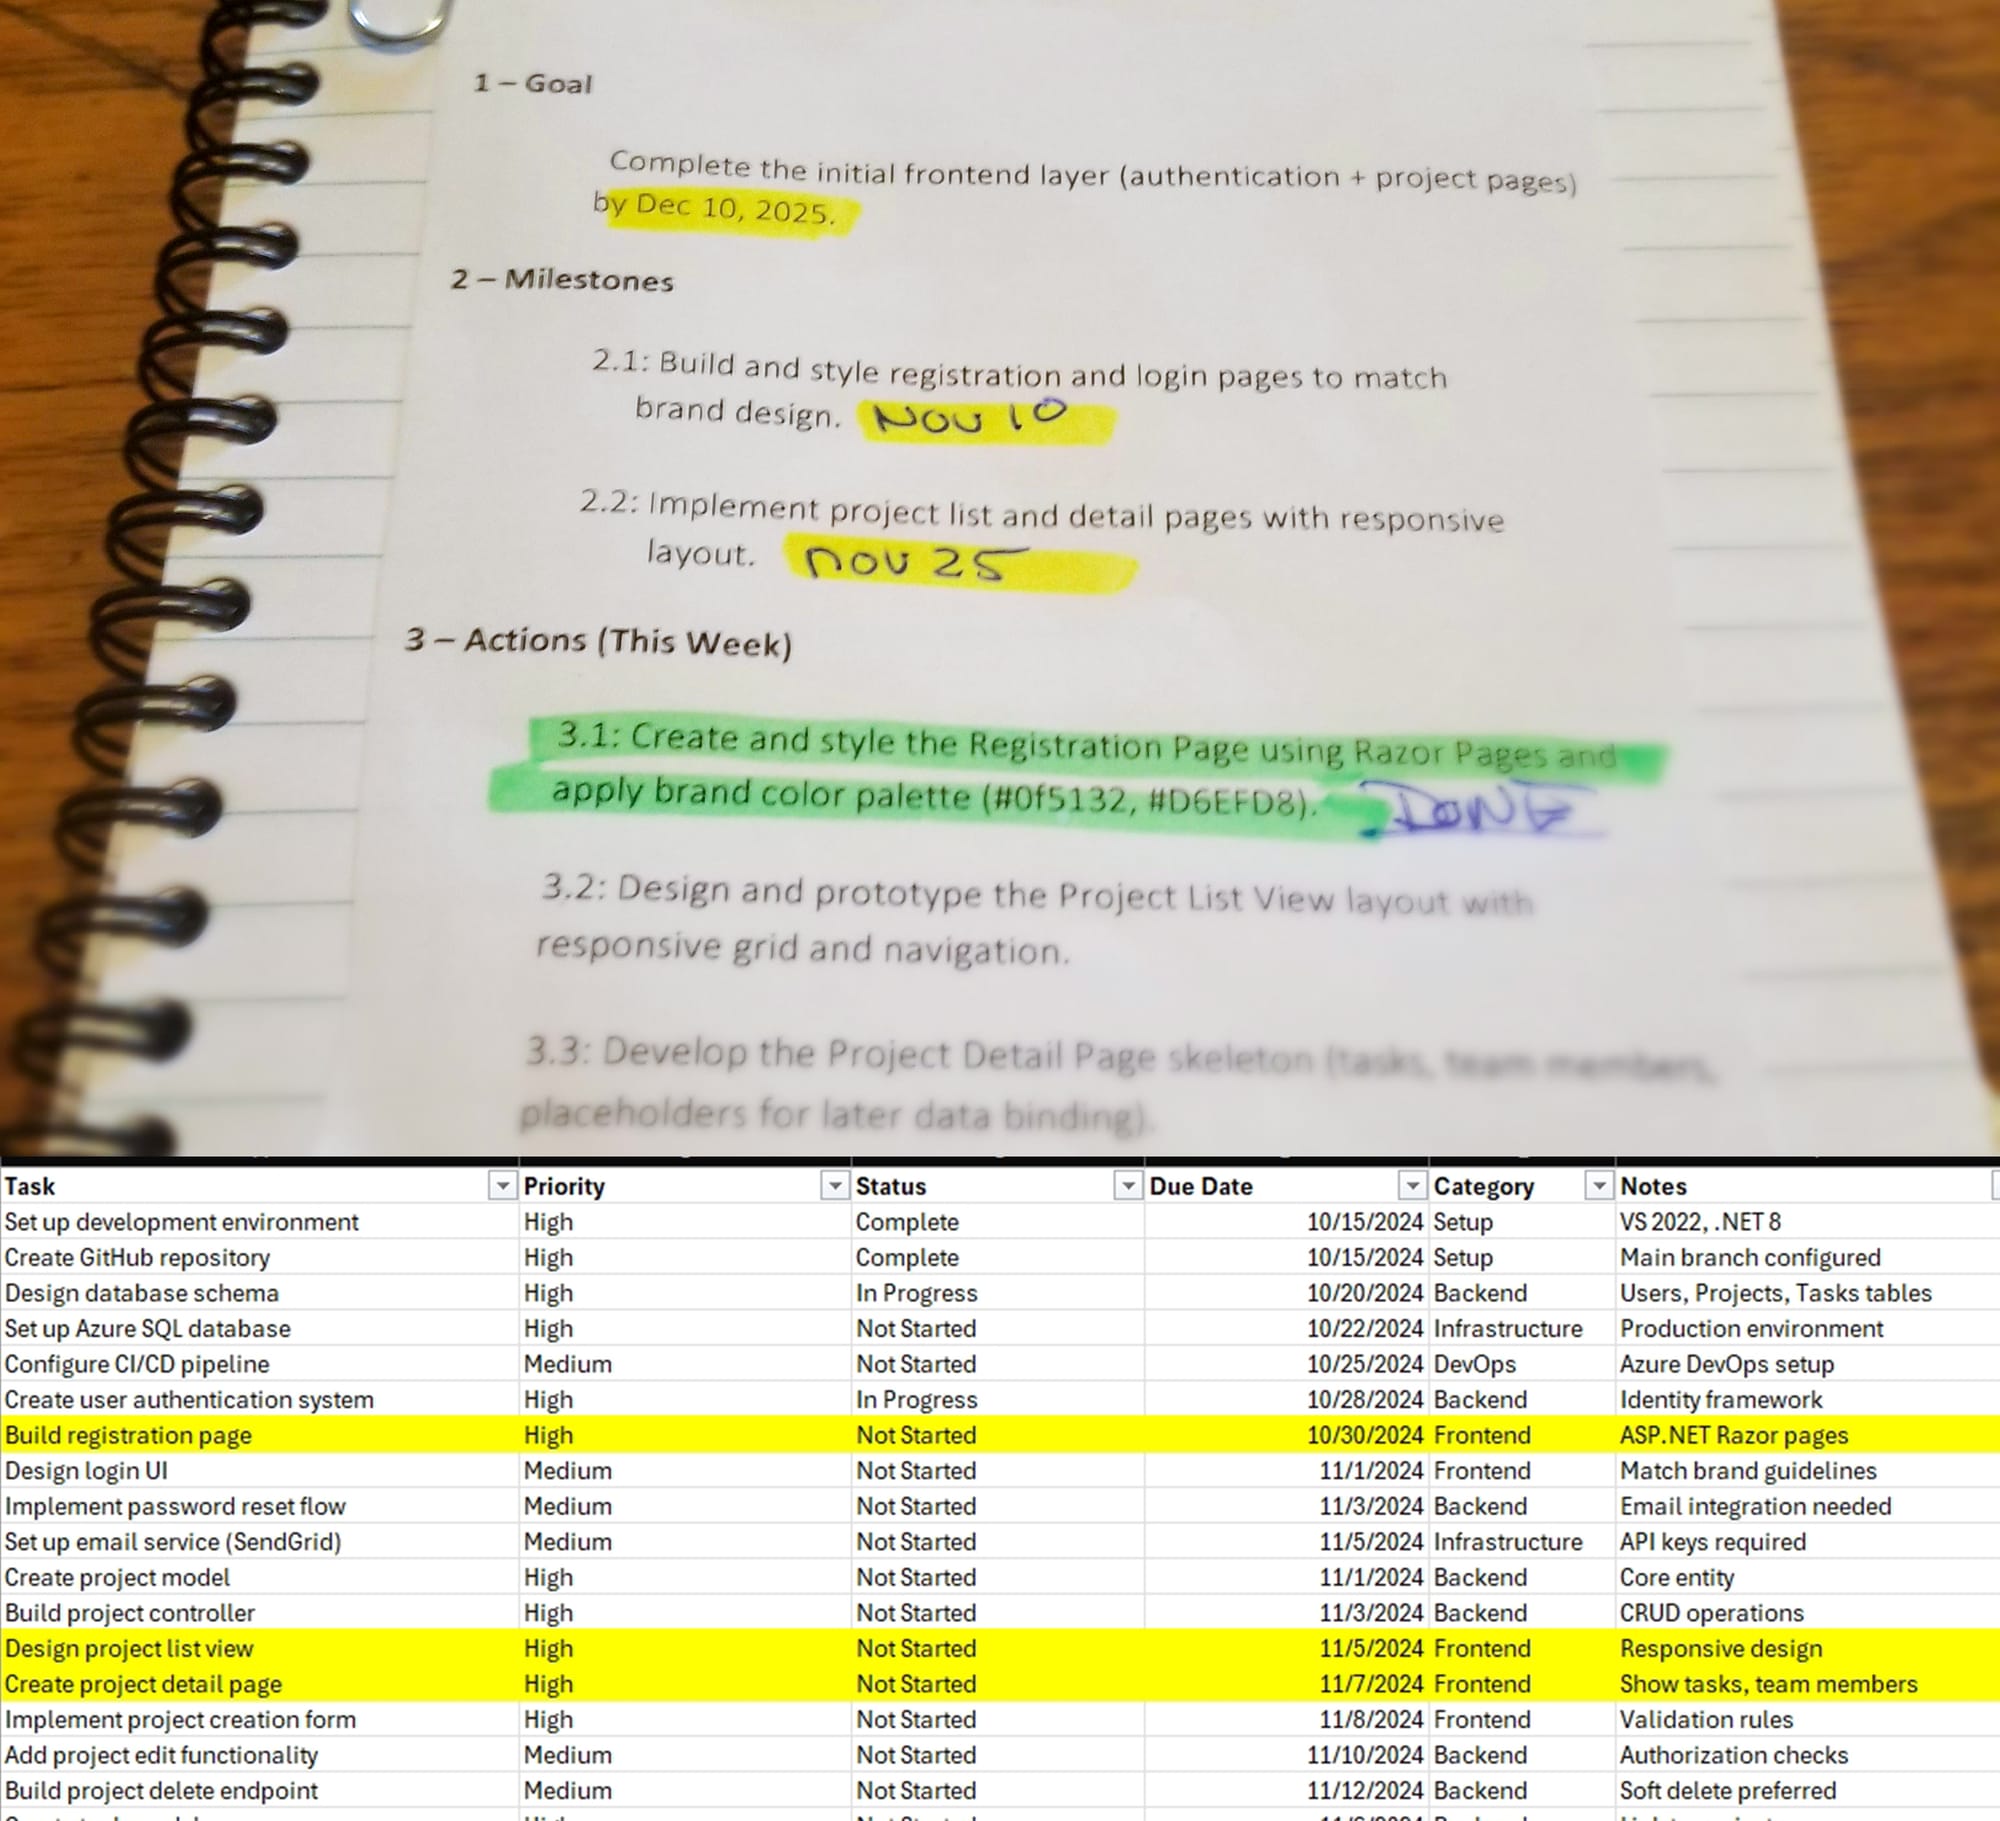 1 – Goal
Complete the initial frontend layer (authentication + project pages)
by Dec 10, 2025.
2 – Milestones
2.1: Build and style registration and login pages to match
brand design. Nov 10
2.2: Implement project list and detail pages with responsive
layout. nov 25
3 – Actions (This Week)
3.1: Create and style the Registration Page using Razor Pages and
apply brand color palette (#0f5132, #D6EFD8). DONE
3.2: Design and prototype the Project List View layout with
responsive grid and navigation.
3.3: Develop the Project Detail Page skeleton (tasks, team members,
placeholders for later data binding).
Task Priority Status Due Date Category Notes
Set up development environment High Complete 10/15/2024 Setup VS 2022, .NET 8
Create GitHub repository High Complete 10/15/2024 Setup Main branch configured
Design database schema High In Progress 10/20/2024 Backend Users, Projects, Tasks tables
Set up Azure SQL database High Not Started 10/22/2024 Infrastructure Production environment
Configure CI/CD pipeline Medium Not Started 10/25/2024 DevOps Azure DevOps setup
Create user authentication system High In Progress 10/28/2024 Backend Identity framework
Build registration page High Not Started 10/30/2024 Frontend ASP.NET Razor pages
Design login UI Medium Not Started 11/1/2024 Frontend Match brand guidelines
Implement password reset flow Medium Not Started 11/3/2024 Backend Email integration needed
Set up email service (SendGrid) Medium Not Started 11/5/2024 Infrastructure API keys required
Create project model High Not Started 11/1/2024 Backend Core entity
Build project controller High Not Started 11/3/2024 Backend CRUD operations
Design project list view High Not Started 11/5/2024 Frontend Responsive design
Create project detail page High Not Started 11/7/2024 Frontend Show tasks, team members
Implement project creation form High Not Started 11/8/2024 Frontend Validation rules
Add project edit functionality Medium Not Started 11/10/2024 Backend Authorization checks
Build project delete endpoint Medium Not Started 11/12/2024 Backend Soft delete preferred